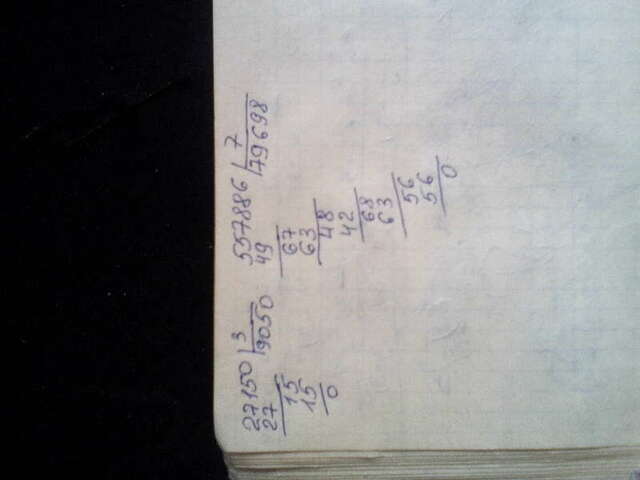 27150 3
27 9050
15
15
0
557886 7
49 79698
67
63
48
42
68
63
56
56
0